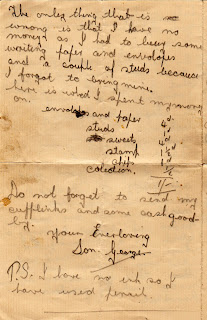 The only thing that is
wrong is that I have no
money as I had to buy some
writing paper and envolopes
and a couple of studs because
I forgot to bring mine.
here is what I spent my money
on.
envolops and paper
studs
sweets
stamp
colection.
1/-
Do not forget to send my
cufflinks and some cash good-
by.
Your Everloving
Son.
P.S. I have no ink so I
have used pencil.